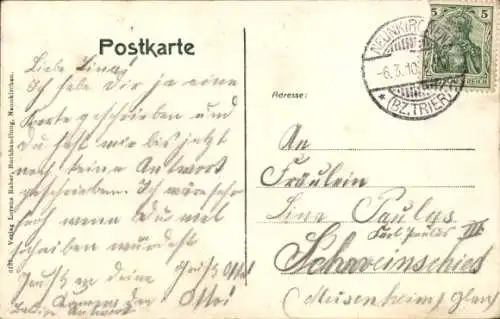 Postkarte
Liebe Lina!
Ich habe Dir ja eine
Karte geschrieben und
Du hast mir bis jetzt
noch keine Antwort
geschrieben. Ich würde sehr
froh wenn Du mal
schreiben würdest
Gruß an deine
Antwort
Adresse:
An
Fräulein
Line Paulus
III
Schweinschied
(Meisenheim, Glan)
NEUNKIRCHEN
-6.3.10.
* (BZ. TRIER)
5 5
Verlag Lorenz Raber, Buchhandlung, Neunkirchen.